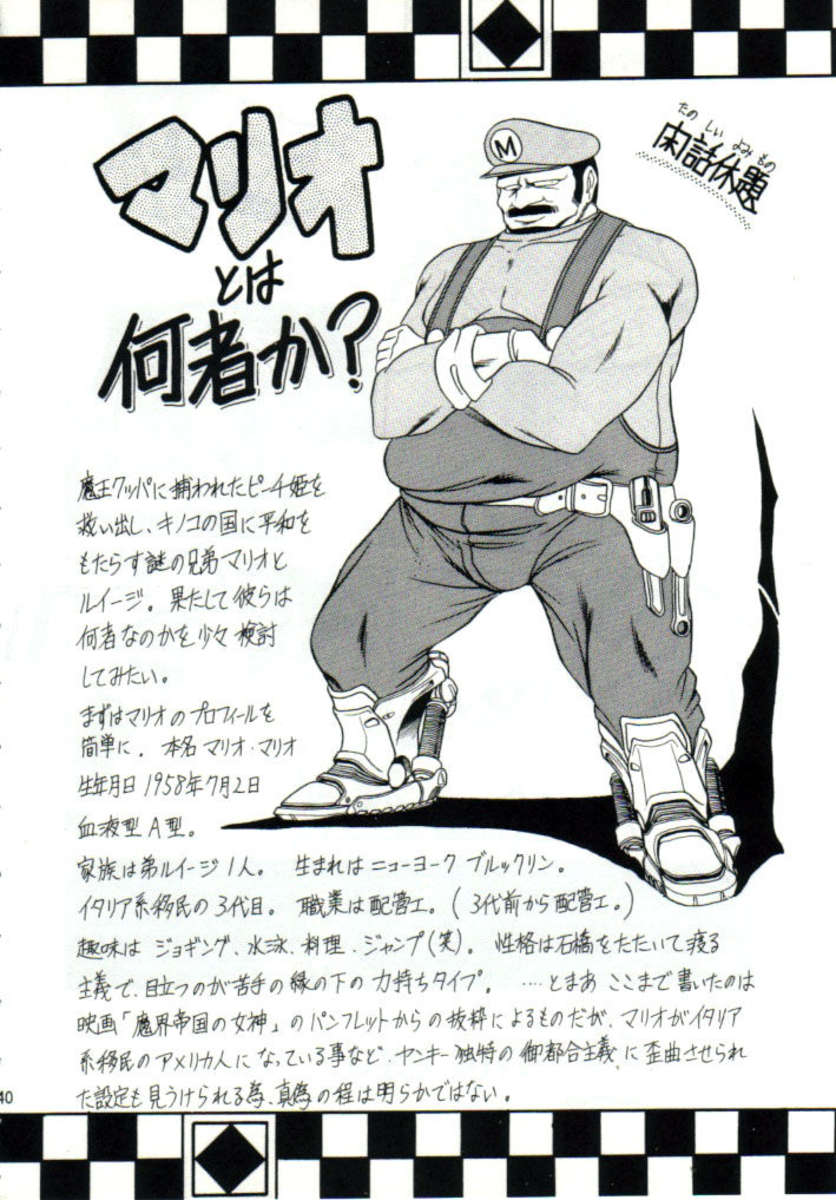 マリオ
とは
何者か?
M
たのしい よみもの
閑話休題
魔王クッパに捕われたピーチ姫を
救い出し、キノコの国に平和を
もたらす謎の兄弟マリオと
ルイージ。果たして彼らは
何者なのかを少々検討
してみたい。
まずはマリオのプロフィールを
簡単に。本名 マリオ・マリオ
生年月日 1958年7月2日
血液型 A型。
家族は弟ルイージ1人。 生まれはニューヨーク ブルックリン。
イタリア系移民の3代目。 職業は配管工。(3代前から配管工。)
趣味は ジョギング、水泳、料理、ジャンプ(笑)。 性格は石橋をたたいて寝る
主義で、目立つのが苦手の縁の下の力持ちタイプ。 ‥‥とまあ ここまで書いたのは
映画「魔界帝国の女神」のパンフレットからの抜粋によるものだが、マリオがイタリア
系移民のアメリカ人になっている事など、ヤンキー独特の御都合主義に歪曲させられ
た設定も見うけられる為、真偽の程は明らかではない。
40